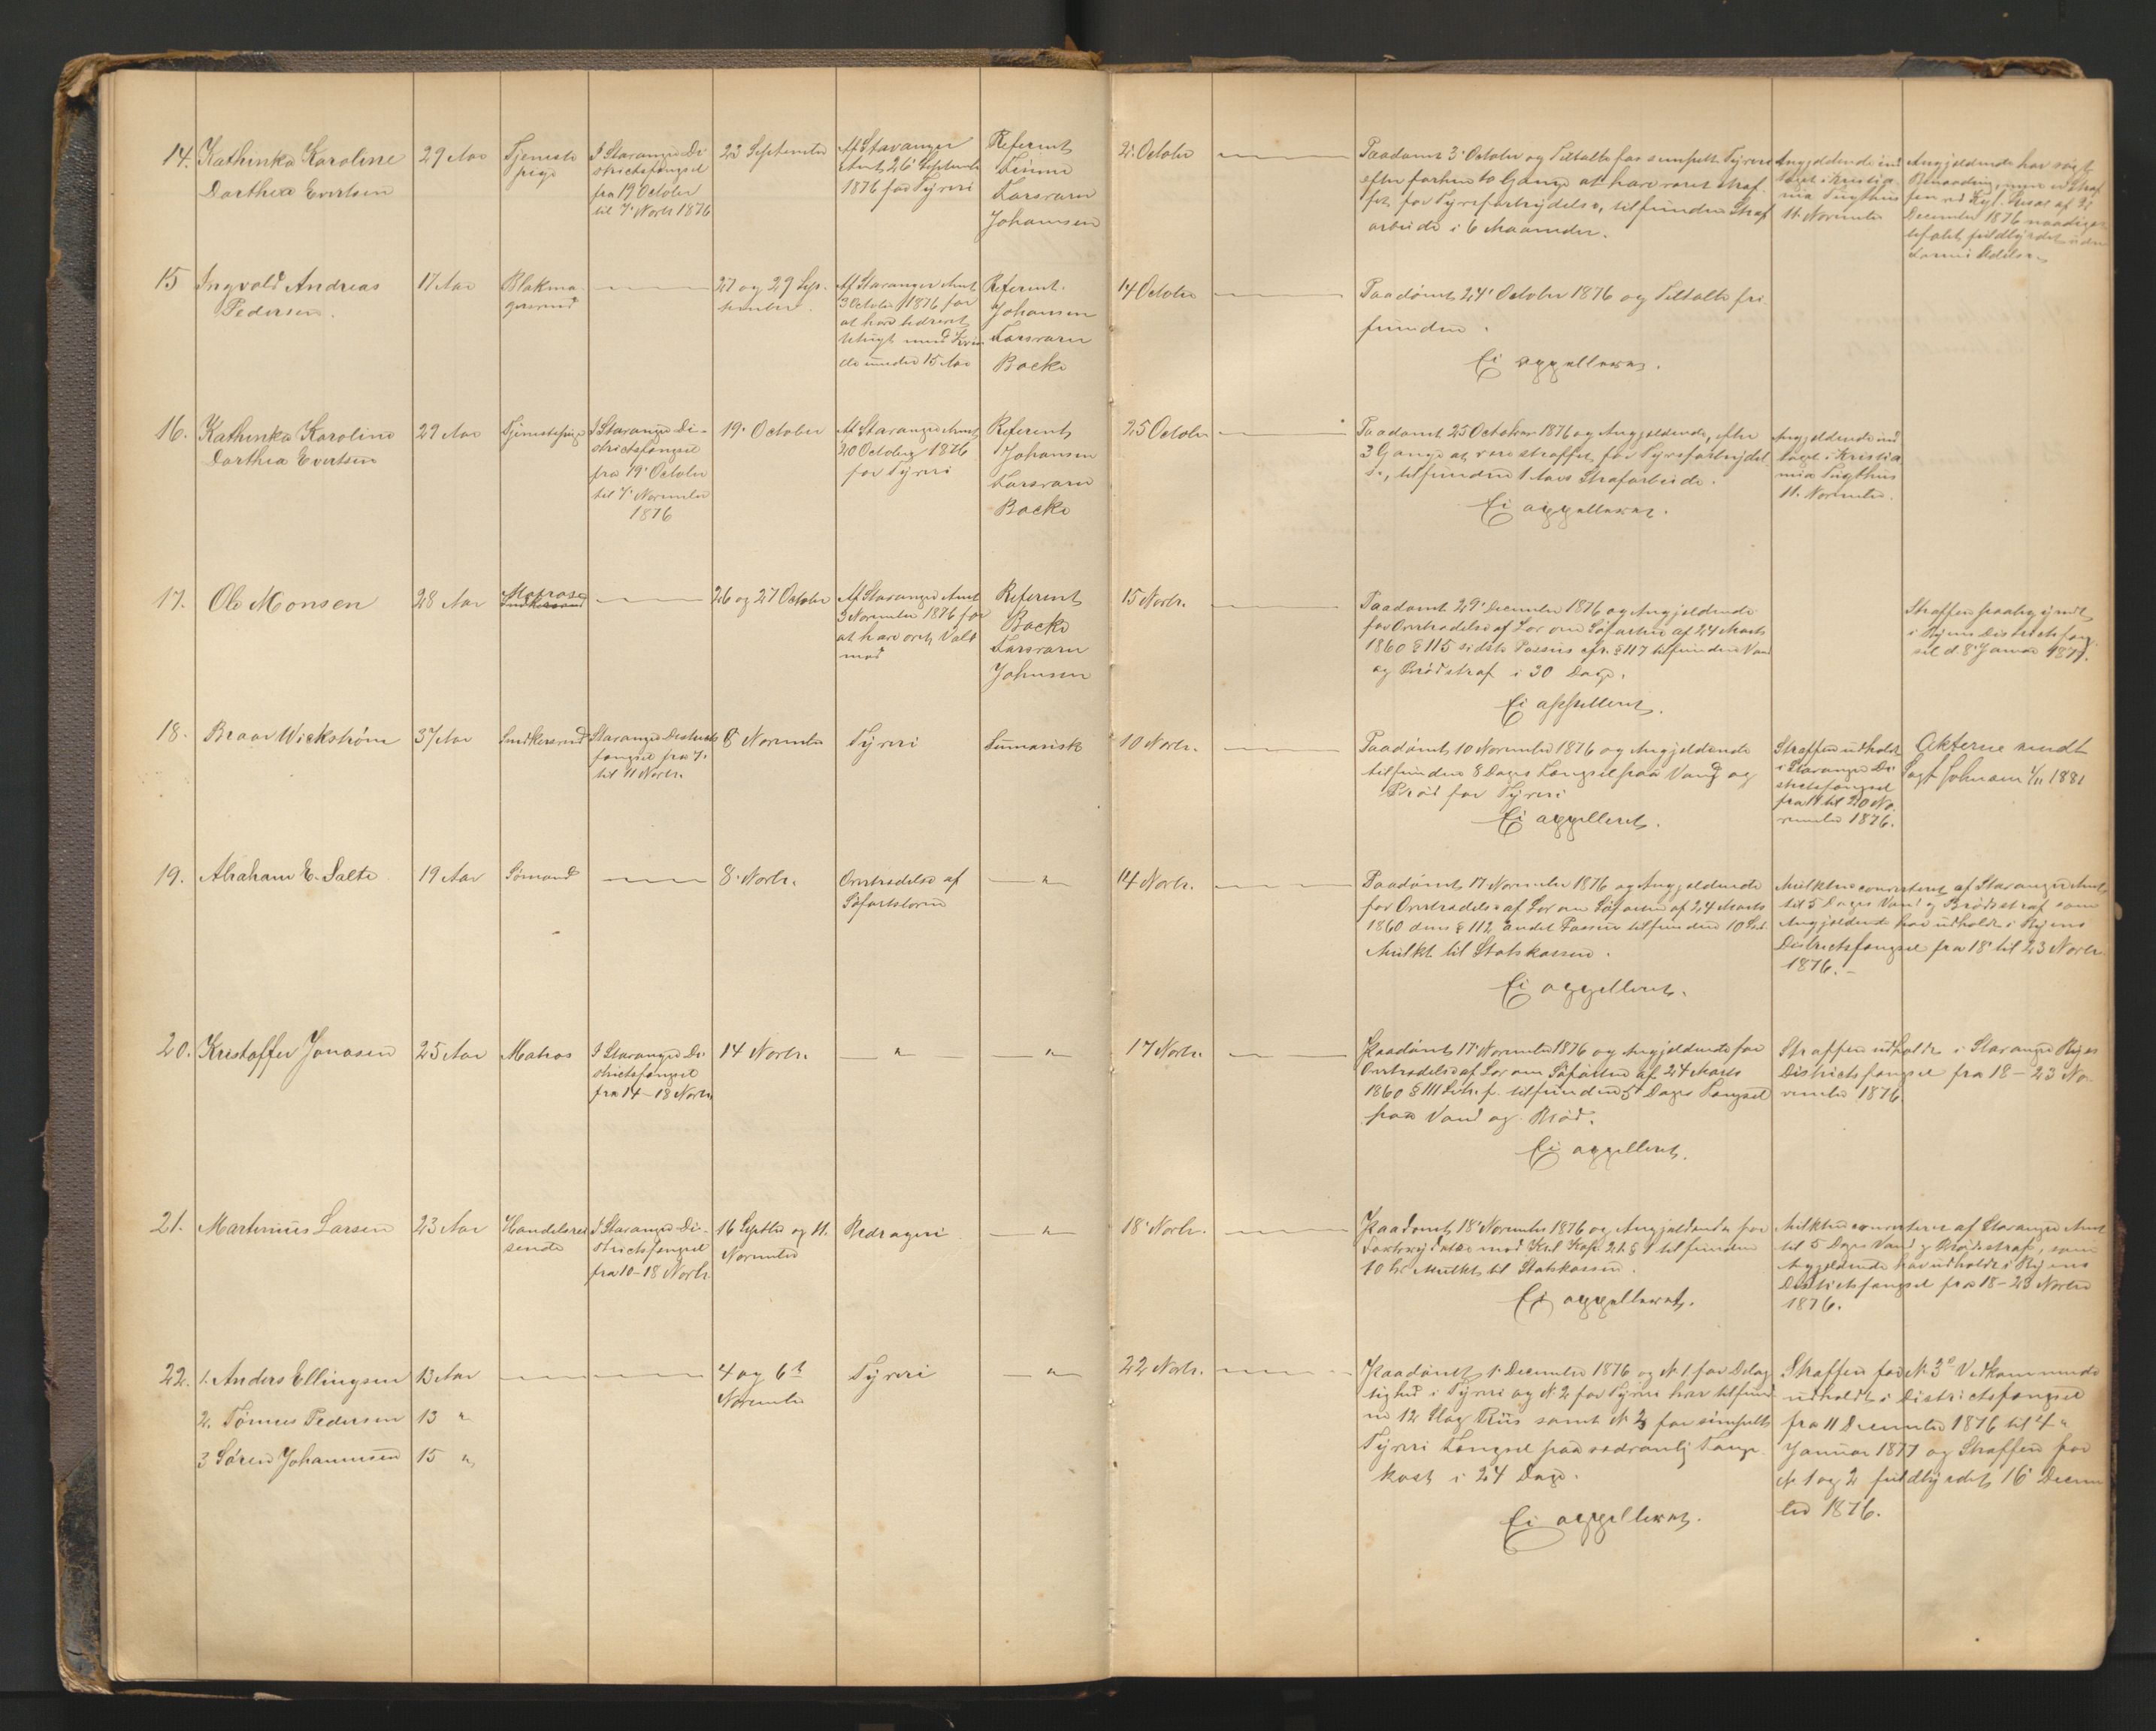 14. Kathinka Karoline
Dorthea Evertsen
29 Aar
Tjeneste
pige
I Stavanger Di
strictsfængsel
fra 19 October
til 7' Novbr 1876
23 September
Af Stavanger
Amt 26' Septembr
1876 for Tyveri
Referent
Forsvarer
Johannsen
2' October
Paadømt 3' October og Tiltalte for simpelt Tyveri
efter forhen to Gange at have været straf
fet for Tyvsforbrydelse, tilfunden Straf
arbeide i 6 Maaneder.
Angjeldende ind
taget i Kristia
nia Tugthus
11. November
Angjeldende har søgt
Benaadning, men er Straf
fen ved Kgl. Resol. af 21
December 1876 naadigst
befalet fuldbyrdet uden
Formildelse
15 Ingvald Andreas
Pedersen.
17 Aar
Blikma
gersvend
27 og 29 Sep.
tember.
Af Stavanger Amt
3 October 1876 for
at have bedrevet
Utugt med Kvin
de under 15 Aar
Referent
Johansen
Forsvarer
Backe
14 October
Paadømt 24' October 1876 og Tiltalte fri
funden.
Ei appelleret.
16. Kathinka Karoline
Dorthea Evertsen
29 Aar
Tjenestepige
I Stavanger Di-
strictsfængsel
fra 19' October
til 7' November
1876
19. October
Af Stavanger Amt
20 October 1876
for Tyveri
Referent
Johansen
Forsvarer
Backe
25 Octobr
Paadømt 25 October 1876 og Angjeldende, efter
3 Gange at være straffet for Tyvsforbrydel
se, tilfunden 1 Aars Strafarbeide.
Ei appelleret.
Angjeldende ind
taget i Kristia
nia Tugthus
11. November.
17. Ole Monsen
28 Aar
Matros
26 og 27 October
Af Stavanger Amt
3 November 1876 for
at have øvet Vold
mod
Referent
Backe
Forsvarer
Johnsen
15 Novbr.
Paadømt 29' December 1876 og Angjeldende
for Overtrædelse af Lov om Søfarten af 24 Marts
1860 § 115 sidste Passus cfr. § 117 tilfunden Vand
og Brødstraf i 30 Dage.
Ei appelleret.
Straffen paabegyndt
i Byens Districtsfæng
sel d. 8' Januar 1877.
18. Braar Wickstrøm
37 Aar
Snedkersvend
Stavanger Districts
fængsel fra 7.
til 11 Novbr.
8 November
Tyveri
Summarisk
10 Novbr.
Paadømt 10 November 1876 og Angjeldende
tilfunden 8 Dages Fængsel paa Vand og
Brød for Tyveri
Ei appelleret.
Straffen udholdt
i Stavanger Di
strictsfængsel
fra 11 til 20 No
vember 1876.
Akterne sendt
Sagf. Johnsen 1/11 1881
19. Abraham E. Salte
19 Aar
Sømand
8. Novbr.
Overtrædelse af
Søfartsloven
"
14 Novbr.
Paadømt 17 November 1876 og Angjeldende
for Overtrædelse af Lov om Søfarten af 24 Marts
1860 dens § 112 andet Passus tilfunden 10 Spd.
Mulkt til Statskassen.
Ei appelleret.
Mulkten converteret af Stavanger Amt
til 5 Dages Vand og Brødstraf som
Angjeldende har udholdt i Byens
Districtsfængsel fra 18' til 23 Novbr.
1876.-
20. Kristoffer Jonasen
25 Aar
Matros
I Stavanger Di
strictsfængsel
fra 14-18 Novbr
14 Novbr.
"
"
17 Novbr.
Paadømt 17' November 1876 og Angjeldende for
Overtrædelse af Lov om Søfarten af 24 Marts
1860 § 111 Litr. f. tilfunden 5 Dages Fængsel
paa Vand og Brød.
Ei appelleret.
Straffen udholdt i Stavanger Byes
Districtsfængsel fra 18-23 No-
vember 1876.
21. Martinius Larsen
23 Aar
Handelsrei
sende
I Stavanger Di-
strictsfængsel
fra 10-18 Novbr
16 Septbr og 11.
November
Bedrageri
"
18' Novbr.
Paadømt 18' November 1876 og Angjeldende for
Forbrydelse mod Krl Kap. 21 § 1 tilfunden
10 Mulkt til Statskassen.
Ei appelleret.
Mulkten converteret af Stavanger Amt
til 5 Dages Vand og Brødstraf, som
Angjeldende har udholdt i Byens
Districtsfængsel fra 18-23 Novbr
1876.
22. 1. Anders Ellingsen
2. Tønnes Pedersen
3 Søren Johannesen
13 Aar
13 "
15 "
4 og 6te
November
Tyveri
"
22 Novbr.
Paadømt 1' December 1876 og N. 1 for Delag
tighed i Tyveri og N. 2 for Tyveri hver tilfund
ne 12 Slag Riis samt N. 3 for simpelt
Tyveri Fængsel paa sædvanlig Fange
kost i 24 Dage.
Ei appelleret.
Straffen for N. 3's Vedkommende
udholdt i Districtsfængsel
fra 11 December 1876 til 4'
Januar 1877 og Straffen for
N. 1 og 2 fuldbyrdet 16' Decem
ber 1876.